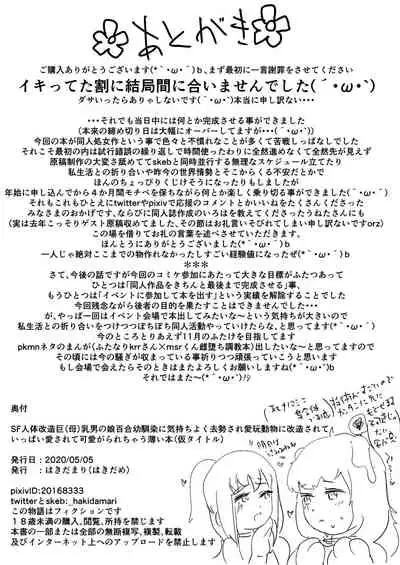 あとがき
ご購入ありがとうございます(*｀･ω･´)ｂ、まず最初に一言謝罪をさせてください
イキってた割に結局間に合いませんでした(´･ω･`)
ダサいったらありゃしないです(´･ω･`)本当に申し訳ない･･･
･･･それでも当日中には何とか完成させる事ができました
(本来の締め切り日は大幅にオーバーしてますが･･･(´･ω･`))
今回の本が同人処女作という事で色々と不慣れなことが多くて苦戦しっぱなしでした
それこそ最初の内は試行錯誤の繰り返しで時間使ったわりに全然進めなくて全然先が見えず
原稿制作の大変さ舐めててskebと同時並行する無理なスケジュール立てたり
私生活との折り合いや昨今の世界情勢とそこからくる不安だとかで
ほんのちょっぴりくじけそうになったりもしましたが
年始に申し込んでから４か月間モチベを保ちながら何とか楽しく乗り切る事ができました(´･ω･`)
それもこれもひとえにtwitterやpixivで応援のコメントとかいいねをたくさんくださった
みなさまのおかげです、ならびに同人誌作成のいろはを教えてくださったうぬたさんにも
(実は去年こっそりゲスト原稿収めてました、その節はお礼言いそびれてしまい申し訳ないですorz)
この場を借りてお礼の言葉を述べさせていただきます。
ほんとうにありがとうございました(*｀･ω･´)ｂ
一人じゃ絶対ここまでの物作れなかったしすごい経験値になったぜ(*｀･ω･´)ｂ
＊＊＊
さて、今後の話ですが今回のコミケ参加にあたって大きな目標がふたつあって
ひとつは「同人作品をきちんと最後まで完成させる」事、
もうひとつは「イベントに参加して本を出す」という実績を解除することでした
今回残念ながら後者の目的を果たすことはできませんでした･･･
が、やっぱ一回はイベント会場で本出してみたいな～という気持ちが大きいので
私生活との折り合いをつけつつぼちぼち同人活動やっていけたらな、と思ってます(*｀･ω･´)
今のところとりあえず11月のふたけを目指してます
pkmnネタのまんが(ふたなりkrrさん×msrくん雌堕ち調教本)出したいな～と思ってますので
その頃には今の騒ぎが収まっている事祈りつつ頑張っていこうと思います
もし会場で会えたらそのときはまたよろしくお願いしますね(*｀･ω･´)ｂ
それではまた～(*｀･ω･´)ﾉｼ
奥付
SF人体改造巨(母)乳男の娘百合幼馴染に気持ちよく去勢され愛玩動物に改造されて
いっぱい愛されて可愛がられちゃう薄い本(仮タイトル)
発行日：2020/05/05
発行：はきだまり(はきだめ)
pixivID:20168333
twitterとskeb:_hakidamari
この物語はフィクションです
１８歳未満の購入、閲覧、所持を禁じます
本書の一部または全部の無断複写、複製、転載
及びインターネット上へのアップロードを禁止します